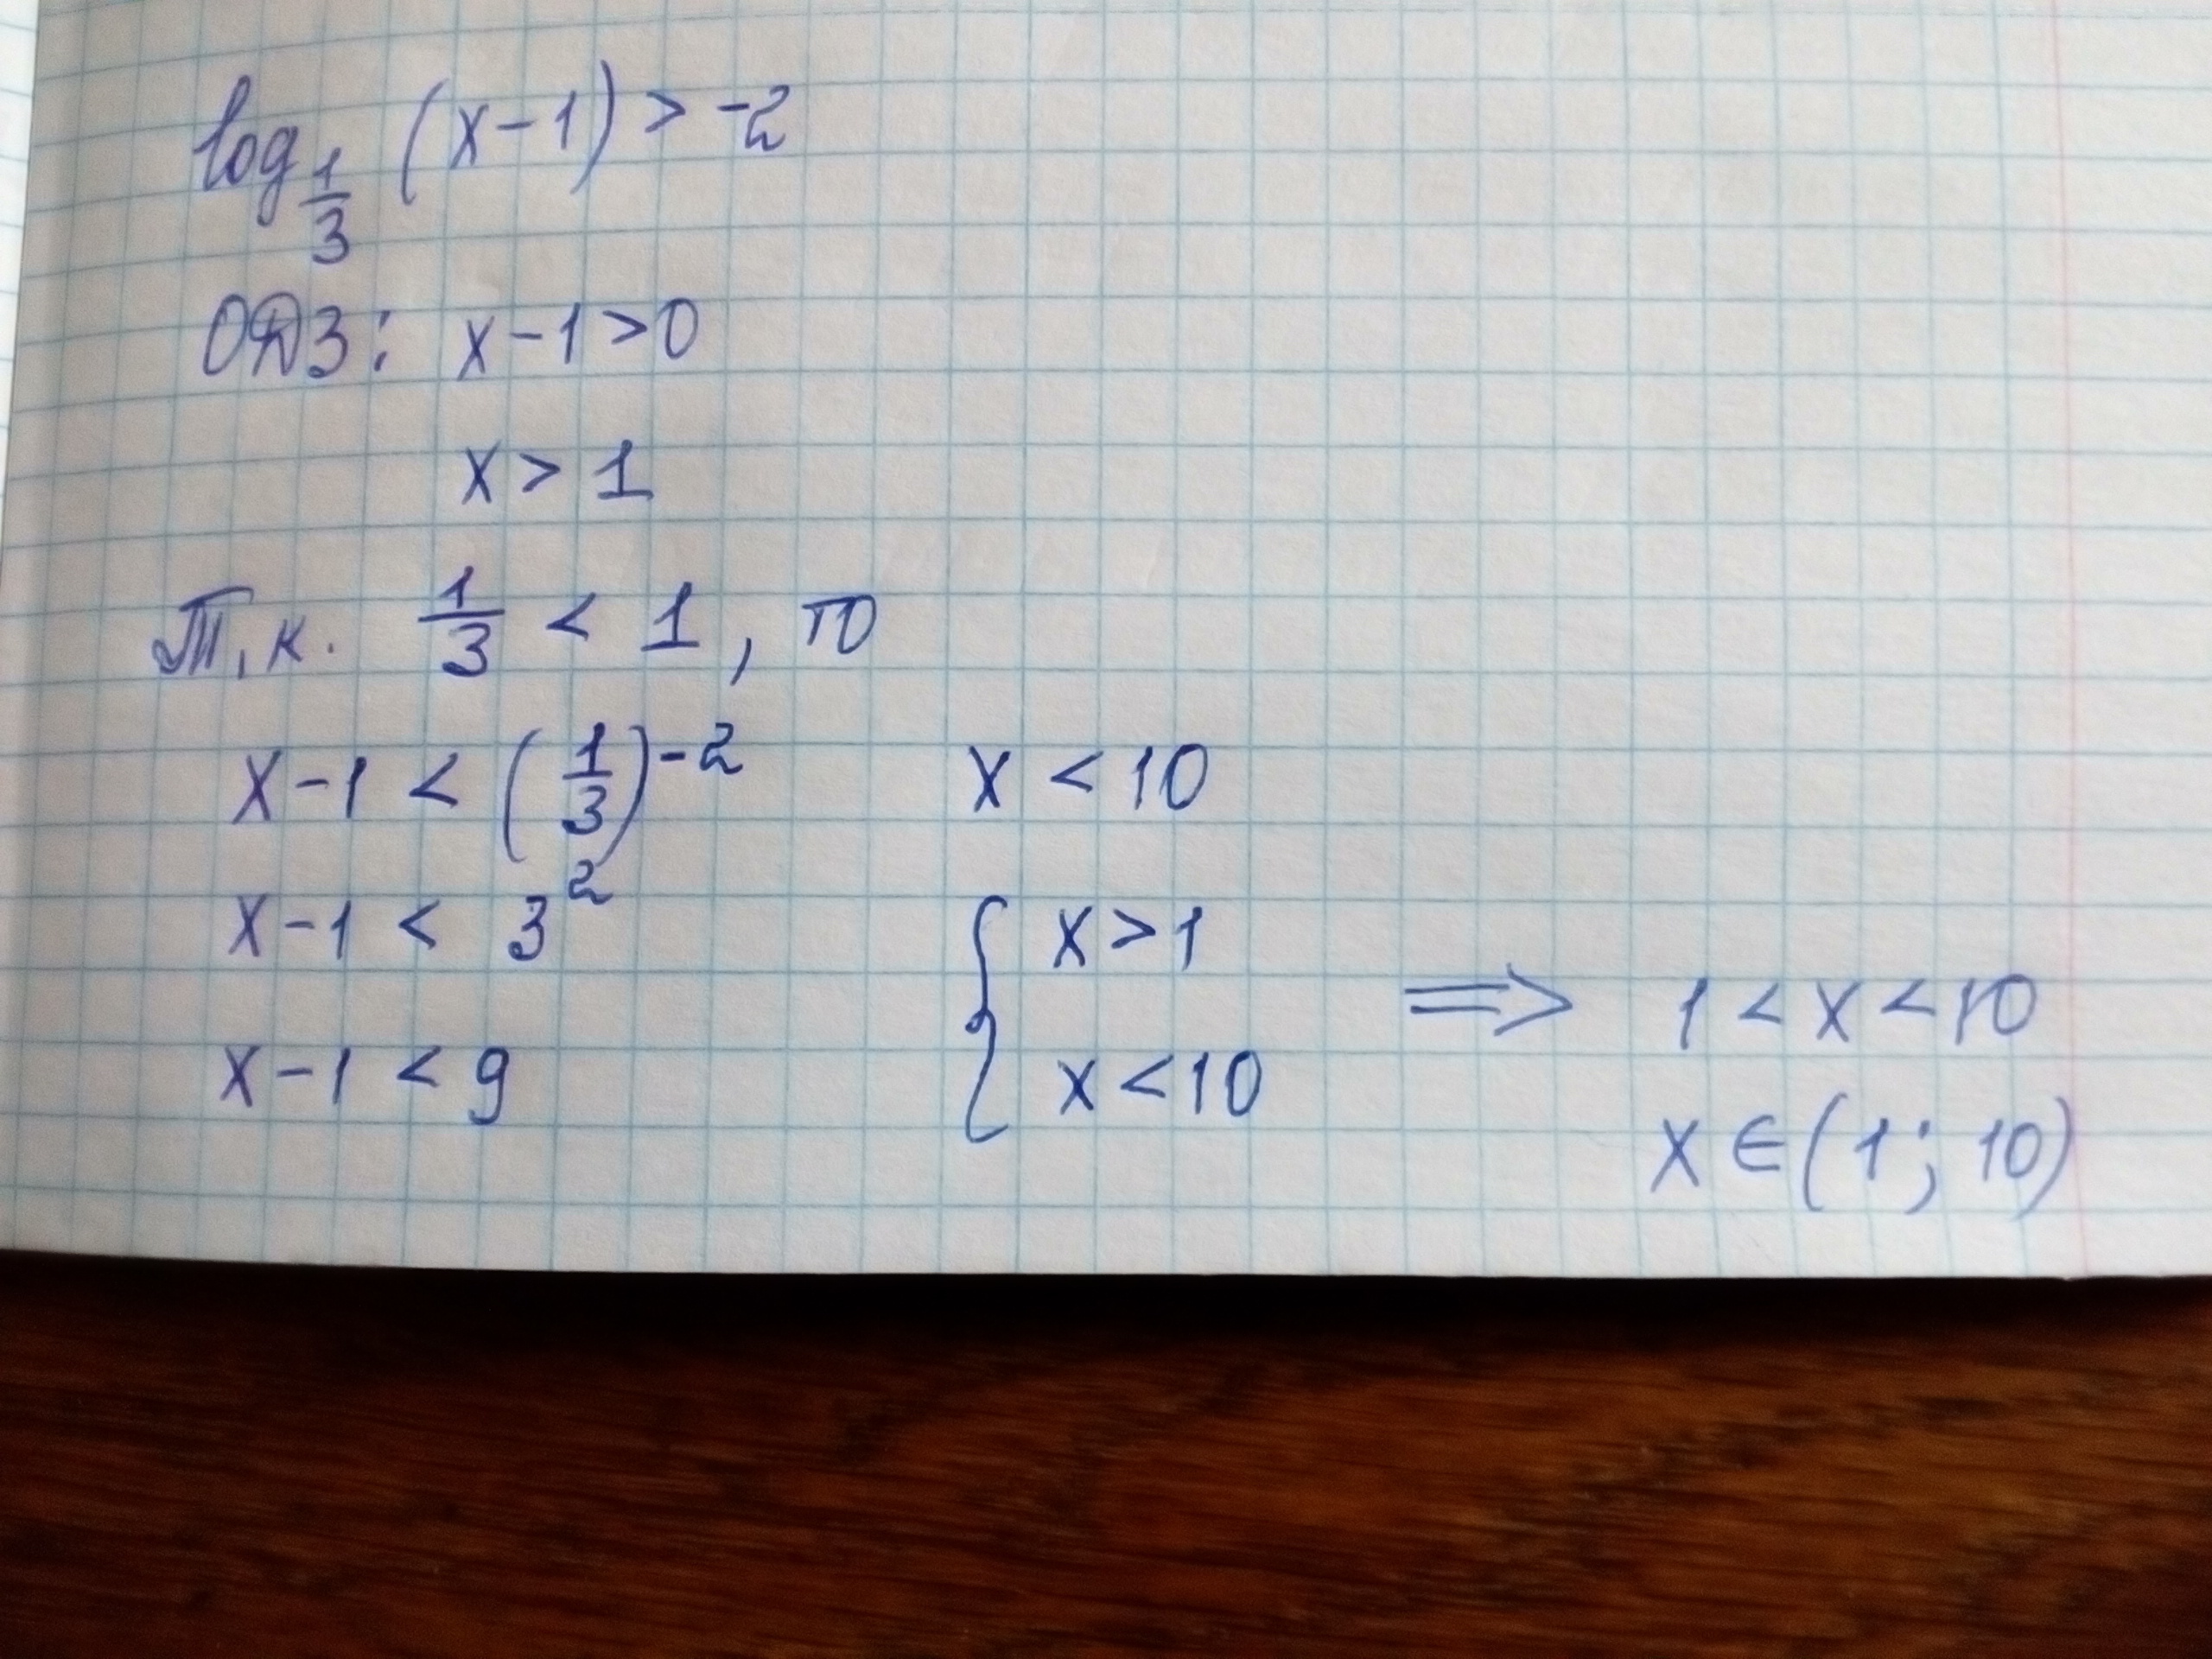 log_{1/3} (x-1) > -2
ОДЗ: x-1>0
x > 1
Т.к. 1/3 < 1, то
x-1 < (1/3)^{-2}
x-1 < 3^2
x-1 < 9
x < 10
{ x>1
x<10
⟹ 1<x<10
x ∈ (1; 10)